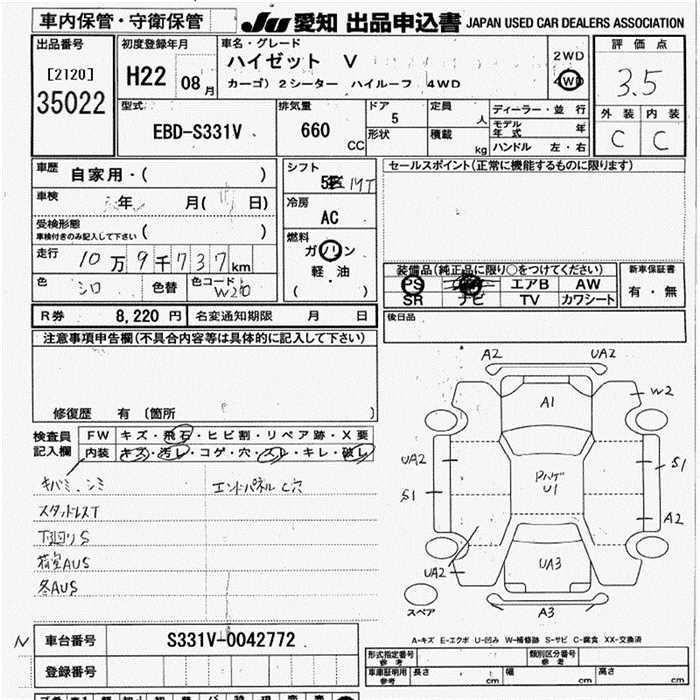 車内保管・守衛保管
JU 愛知 出品申込書 JAPAN USED CAR DEALERS ASSOCIATION
出品番号
[2120]
35022
初度登録年月
H22 08月
車名・グレード
ハイゼット V
カーゴ) 2シーター ハイルーフ 4WD
2WD
4WD
評価点
3.5
外装 内装
C C
型式
EBD-S331V
排気量
660
CC
ドア
5
形状
定員
人
積載
kg
ディーラー・並行
モデル年式 年
ハンドル 左・右
車歴
自家用・( )
車検
年 月( 日)
受検形態
車検付きのみ記入して下さい ( )
走行
10万9千737km
色
シロ
色替
色コード
W20
シフト
5
MT
冷房
AC
燃料
ガソリン
軽・油
( )
セールスポイント(正常に機能するものに限ります)
装備品(純正品に限り○をつけてください)
PS エアB AW
SR ナビ TV カワシート
新車保証書
有・無
後日品
R券 8,220円 名変通知期限 月 日
注意事項申告欄(不具合内容等は具体的に記入して下さい)
修復歴 有 (箇所 )
検査員
記入欄
FW キズ・飛石・ヒビ割・リペア跡・X要
内装 キズ・汚レ・コゲ・穴・スレ・キレ・破レ
キバミ、シミ
エンドパネル C穴
スタッドレスT
下廻りS
荷室AUS
各AUS
A2
UA2
A1
W2
UA2
S1
S1
A2
U1
UA2
UA3
A3
スペア
A-キズ E-エクボ U-凹み W-補修跡 S-サビ C-腐食 XX-交換済
N
車台番号 S331V-0042772
登録番号
形式指定番号
参考
類別区分番号
参考
車庫証明用
参考
長さ cm 幅 cm 高さ cm